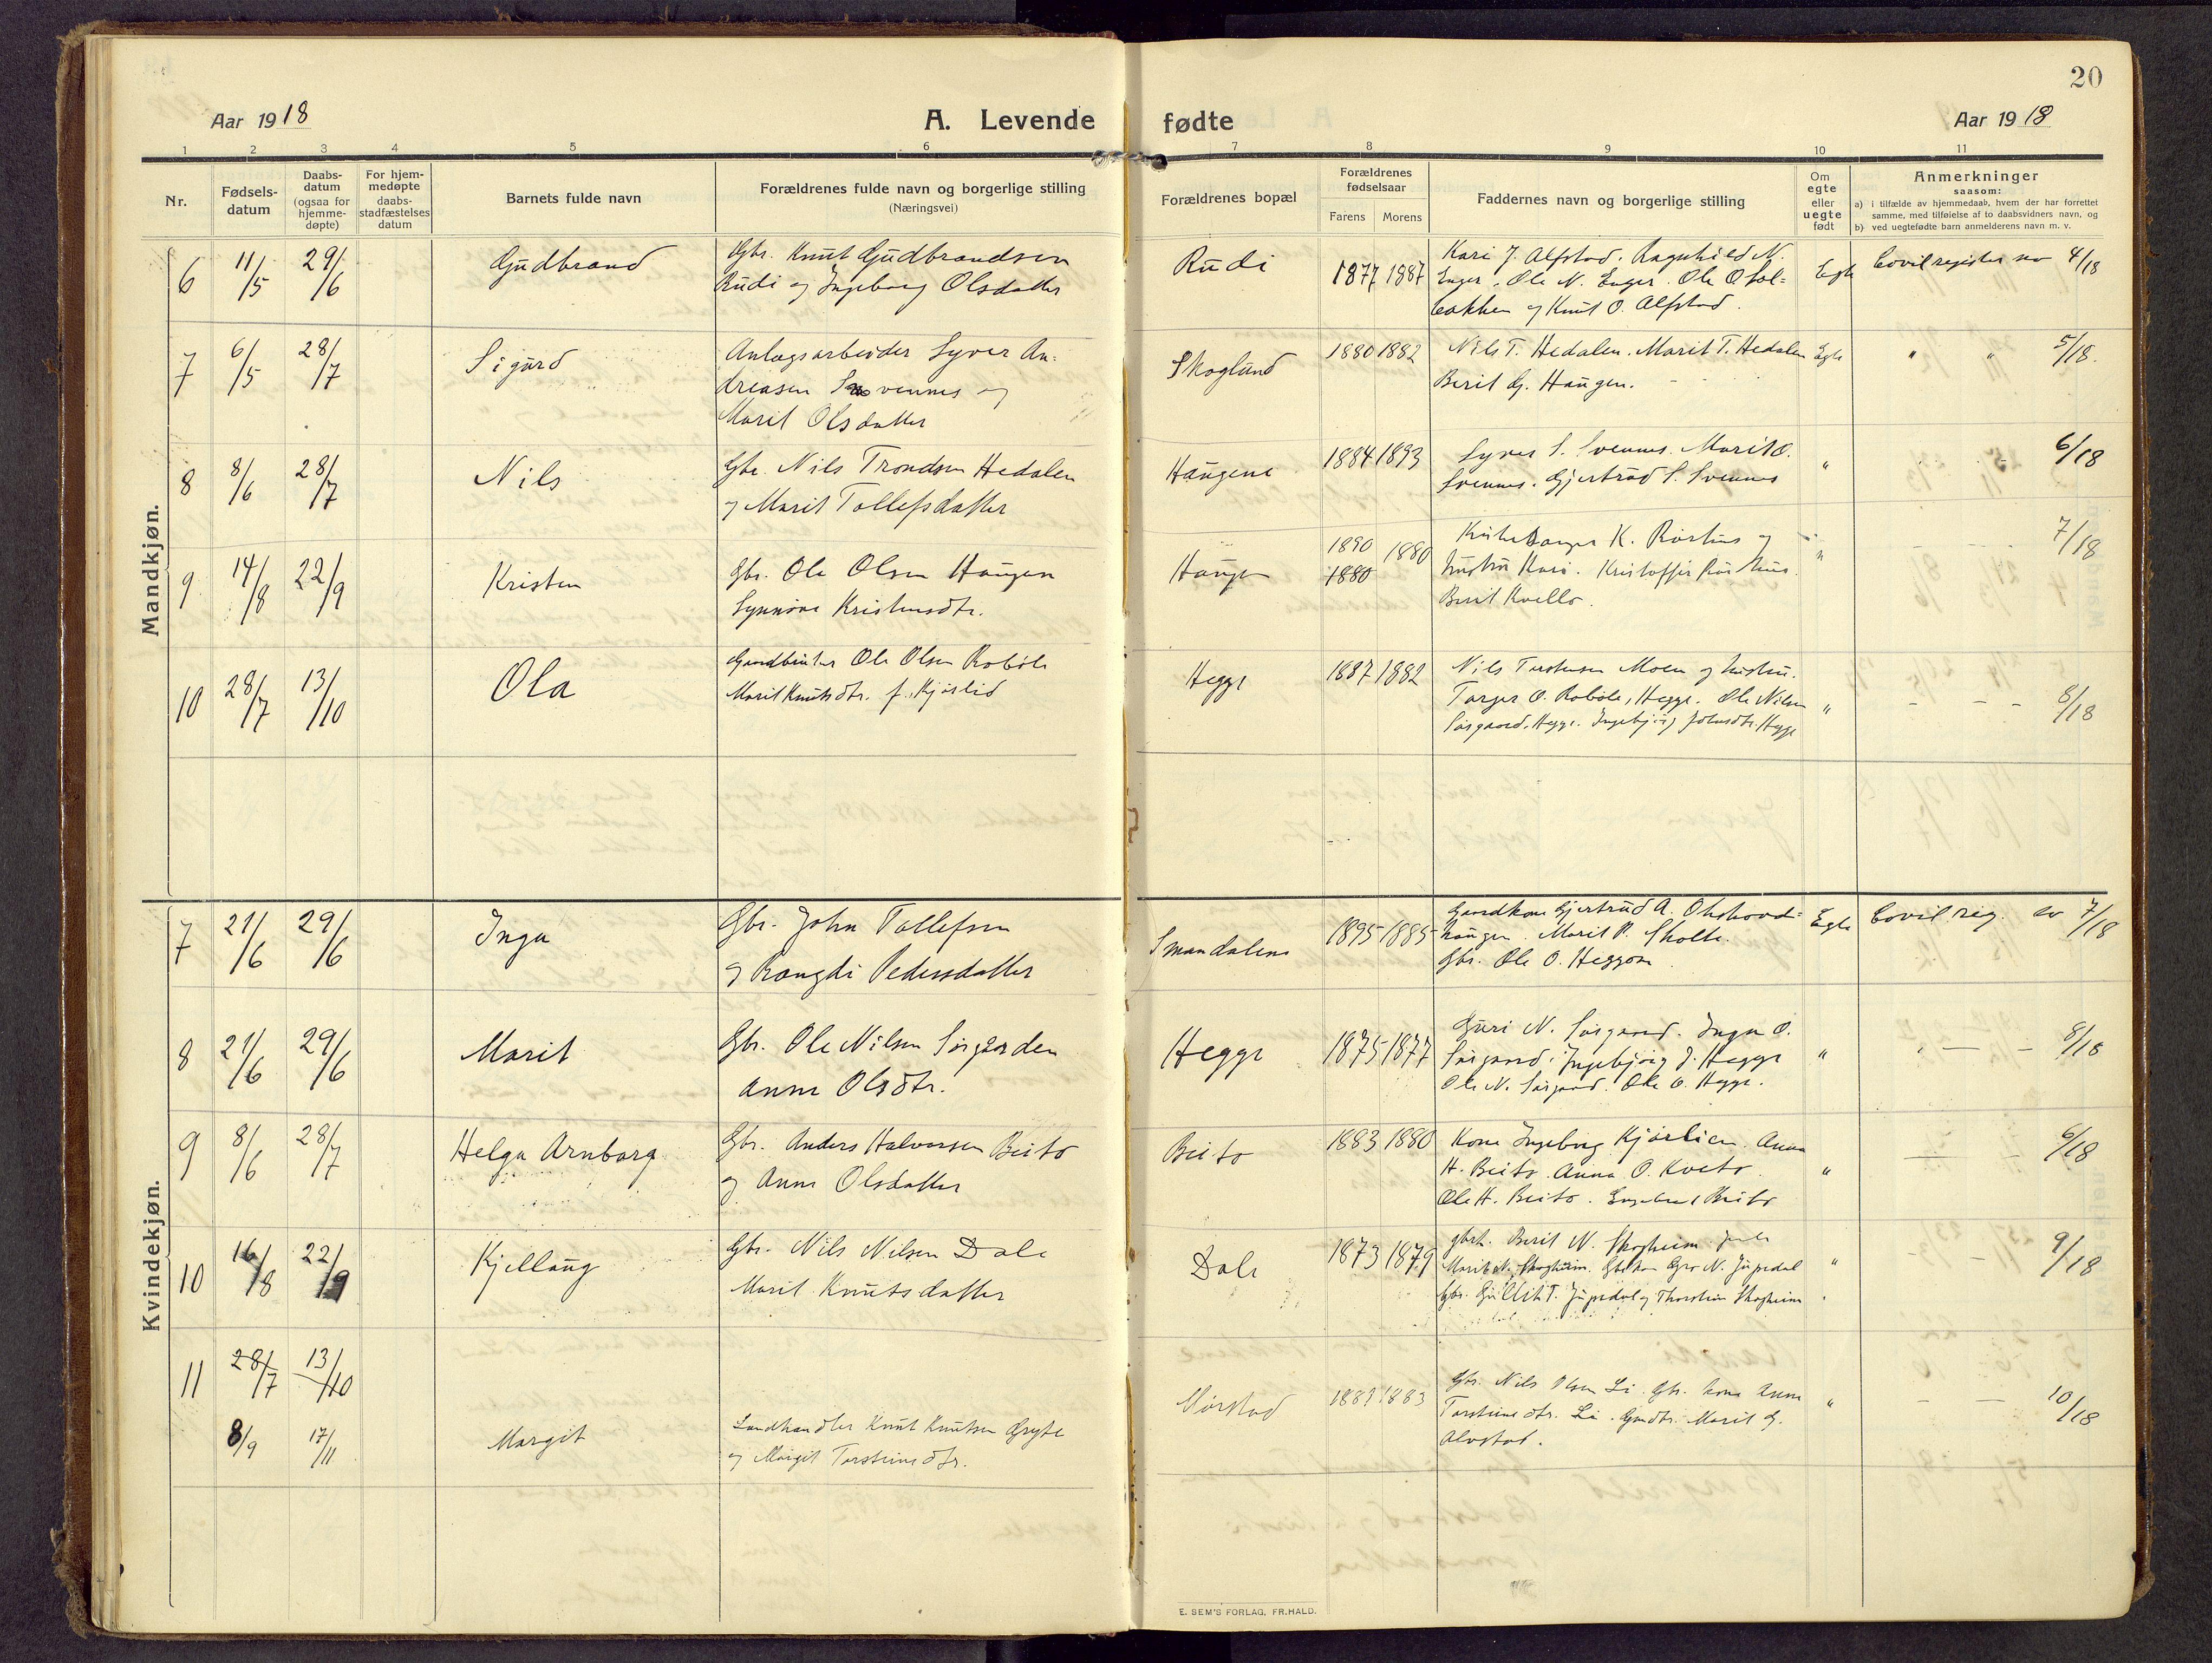 20
Aar 1918
A. Levende fødte
Aar 1918
1 2 3 4 5 6 7 8 9 10 11
Nr.
Fødsels-
datum
Daabs-
datum
(ogsaa for
hjemme-
døpte)
For hjem-
medøpte
daabs-
stadfæstelses
datum
Barnets fulde navn
Forældrenes fulde navn og borgerlige stilling
(Næringsvei)
Forældrenes bopæl
Forældrenes
fødselsaar
Farens Morens
Faddernes navn og borgerlige stilling
Om
egte
eller
uegte
født
Anmerkninger
saasom:
a) i tilfælde av hjemmedaab, hvem der har forrettet
samme, med tilføielse af to daabsvidners navn, og
b) ved uegtefødte barn anmelderens navn m. v.
Mandkjøn.
6 11/5 29/6 Gudbrand
Gbr. Knut Gudbrandsen
Rudi og Ingeborg Olsdatter
Rudi 1877 1887
Kari J. Alfstad. Ragnhild N.
Enger. Ole N. Enger. Ole O Sol=
bakken og Knut O. Alfstad.
Egte Covilregister no 4/18
7 6/5 28/7 Sigurd
Anlægsarbeider Syver An=
dreasen Svennes og
Marit Olsdatter
Skoglund 1880 1882
Nils T. Hedalen. Marit T. Hedalen
Berit G. Haugen.
Egte " " 5/18.
8 8/6 28/7 Nils
Gbr. Nils Trondsen Hedalen
og Marit Tollefsdatter
Haugene 1884 1893
Syver S. Svennes. Marit O.
Svennes. Gjertrud S. Svennes
" 6/18
9 14/8 22/9 Kristen
Gbr. Ole Olsen Haugen
Synnøve Kristensdtr.
Haugen 1890 1880 1880
K. Rørhus og
hustru Kari. Kristoffer Rørhus.
Berit Kvello.
" 7/18
10 28/7 13/10 Ola
Gardbruker Ole Olsen Robøle
Marit Knutsdtr. f. Kjørlid
Hegge 1887 1882
Nils Torstensen Moen og hustru.
Torger O. Robøle, Hegge. Ole Nilsen
Sørgaard, Hegge. Ingebjørg Johnsdtr. Hegge
" - - - 8/18
Kvindekjøn.
7 21/6 29/6 Inga
Gbr. John Tollefsen
og Rangdi Pedersdatter
Smørdalene 1895 1885
Gardkone Gjertrud A. Olshovd=
haugen. Marit P. Skolte.
Gbr. Ole O. Heggom
Egte Covil reg. no 7/18
8 21/6 29/6 Marit
Gbr. Ole Nilsen Sørgarden
Anne Olsdtr.
Hegge 1875 1877
Guri N. Sørgaard. Inga O.
Sørgaard. Ingebjørg J. Hegge
Ole N. Sørgaard. Ole O. Hegge.
" " — - 8/18
9 8/6 28/7 Helga Arnborg
Gbr. Anders Halvorsen Beito
og Anne Olsdatter
Beito 1883 1880
Kone Ingeborg Kjørlien. Anna
H. Beito. Anna O. Kveto.
Ole H. Beito. Beito
" 6/18
10 16/8 22/9 Kjellaug
Gbr. Nils Nilsen Dale
Marit Knutsdatter
Dale 1873 1879
Berit N. Skogheim.
Marit N. Skogheim. Gro N. Jupedal
Gbr. T. Jupedal og Thorstein Skogheim
" 9/18
11 28/7 13/10
8/9 17/11 Margit
Landhandler Knut Knutsen Gryte
og Margit Torsteinsdtr.
Mørstad 1883
Gbr. Nils Olsen Li. Gbr. kone Anne
Torsteinsdtr. Li. Marit G.
Alvstad.
" — — 10/18
E. SEM'S FORLAG, FR.HALD.